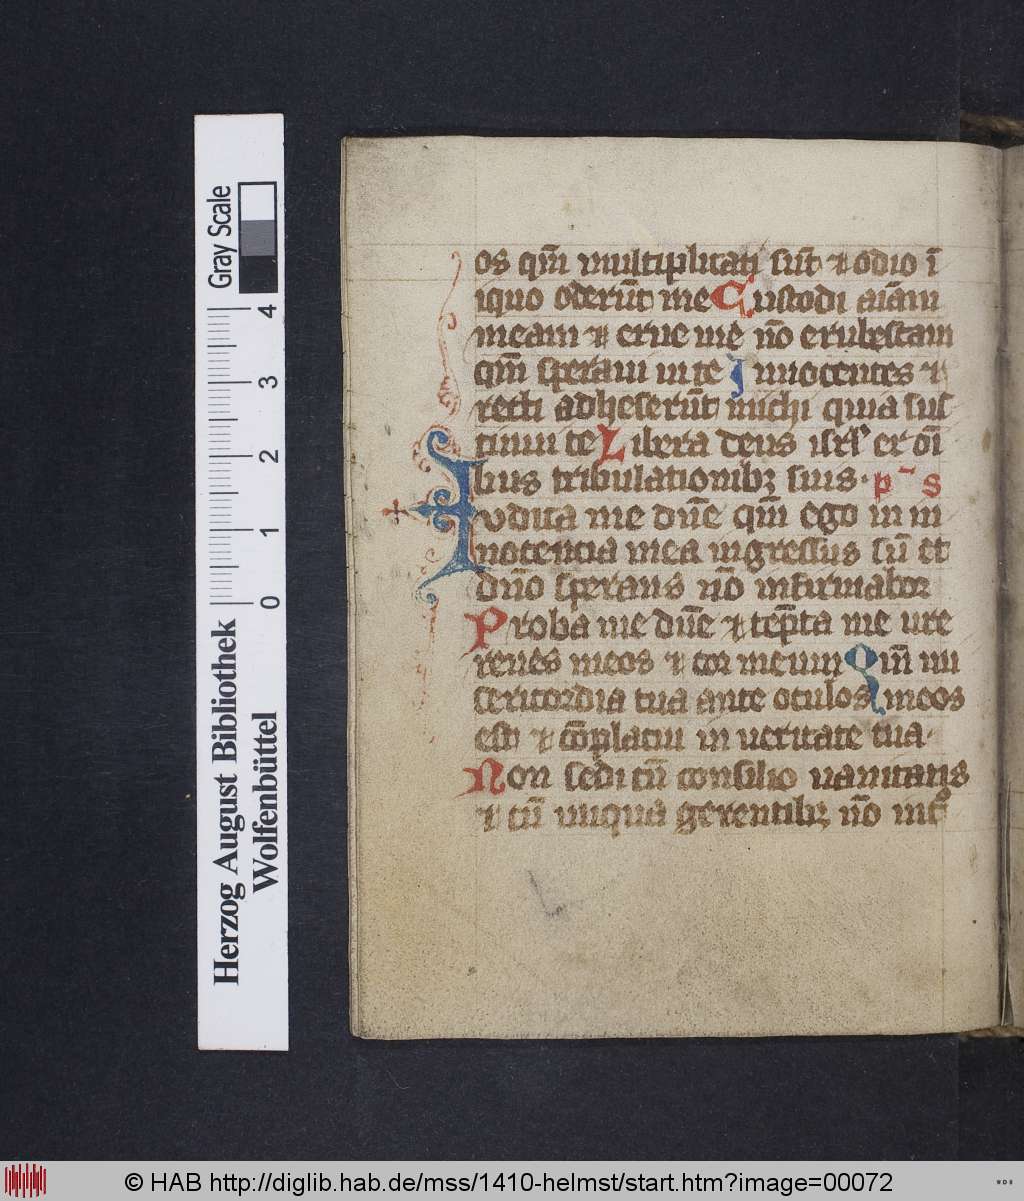 os qm̄ multiplicati sūt ⁊ odio ī
iquo oderūt me Custodi aīam
meam ⁊ erue me nō erubescam
qm̄ speraui in te Innocentes ⁊
recti adheserūt michi quia sus
tinui te Libera deus isrl̄ ex oī
bus tribulationibꝫ suis · p̄ s
Iudica me dn̄e qm̄ ego in in
nocencia mea ingressus sū et
dn̄o sperans nō infirmabor
Proba me dn̄e ⁊ tēpta me ure
renes meos ⁊ cor meum Qm̄ mi
sericordia tua ante oculos meos
est ⁊ cōplacui in ueritate tua ·
Non sedi cū consilio vanitatis
⁊ cū iniqua gerentibꝫ nō int
Gray Scale
0 1 2 3 4
Herzog August Bibliothek
Wolfenbüttel
© HAB http://diglib.hab.de/mss/1410-helmst/start.htm?image=00072